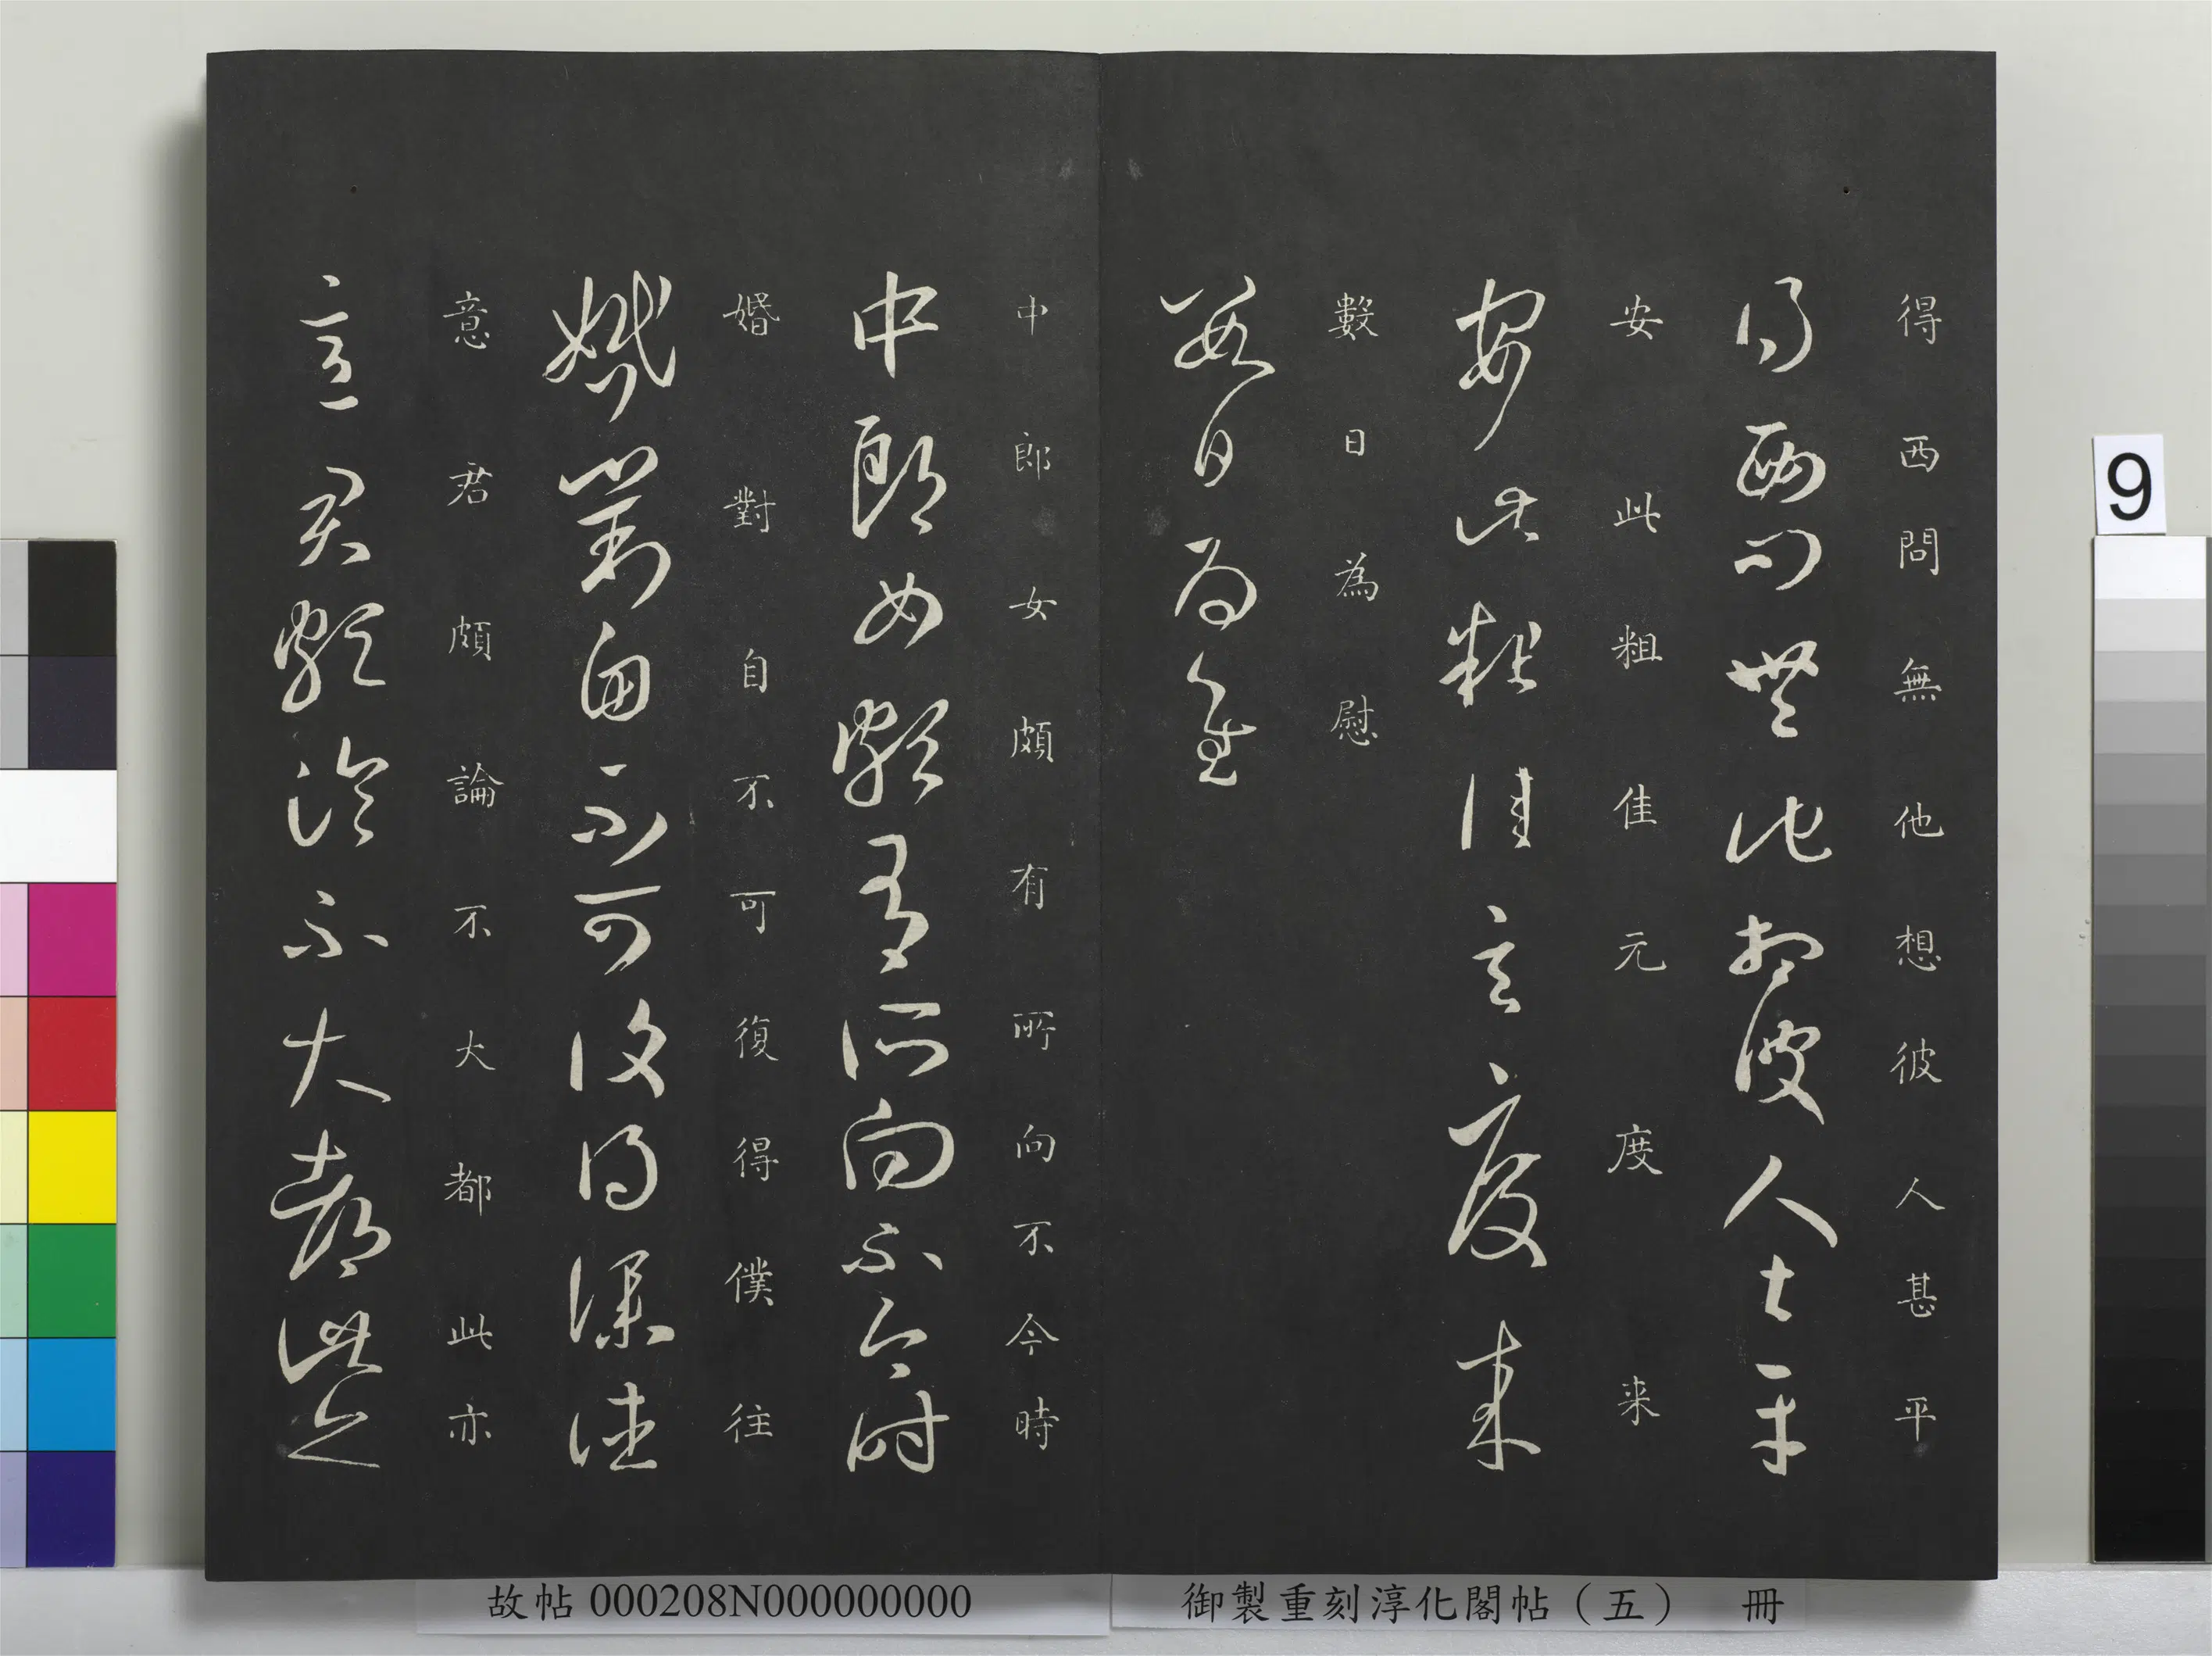 得西問無他想彼人甚平
得西問無他想彼人士平
安此粗佳元度来
安此粗佳玄度来
數日為慰
數日為慰
中郎女頗有所向不今時
中郎女頗有所向不今時
婚對自不可復得僕往
婚對自不可復得僕往
意君頗論不大都此亦
意君頗論不大都此亦
9
御製重刻淳化閣帖（五） 冊
故帖 000208N000000000